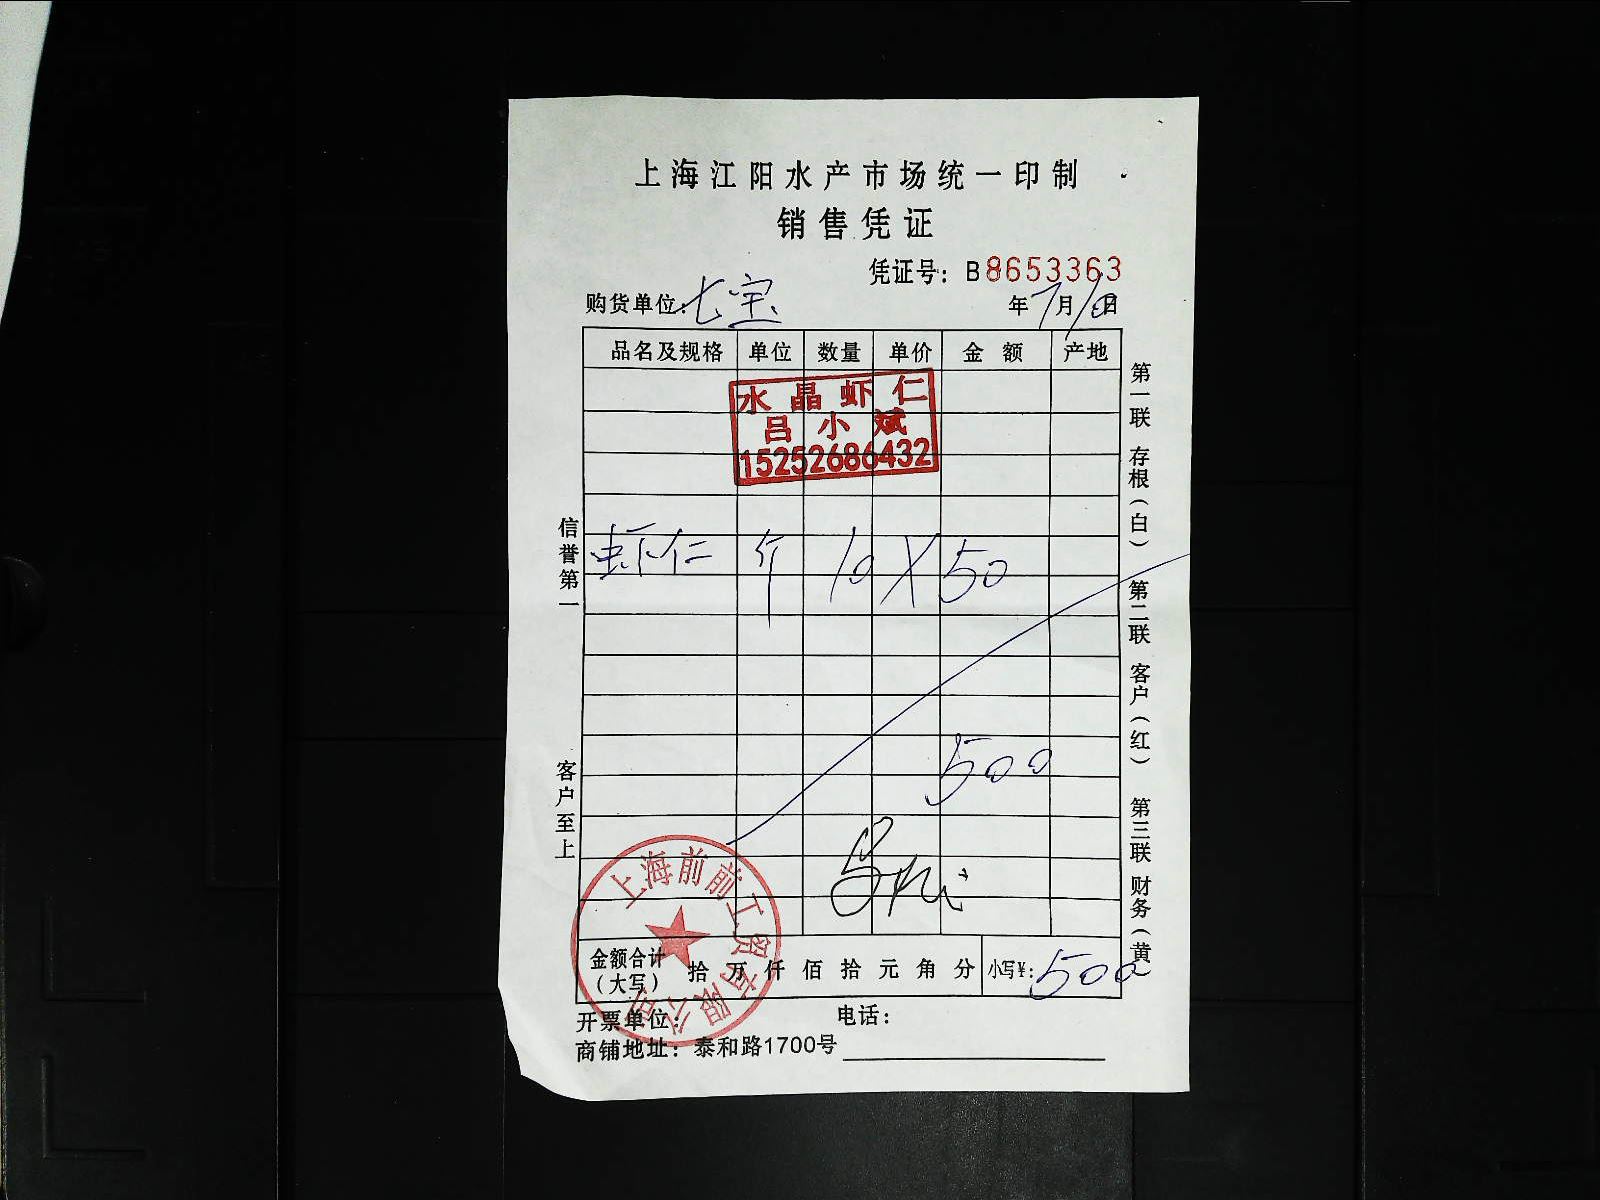 上海江阳水产市场统一印制
销售凭证
凭证号：B8653363
购货单位：七宝 年7月10日
品名及规格 单位 数量 单价 金额 产地
水晶虾仁
吕小斌
15252686432
虾仁 斤 10 X 50
500
金额合计（大写） 拾 万 仟 佰 拾 元 角 分 小写¥：500
开票单位： 电话：
商铺地址：泰和路1700号
上海前前工贸有限公司
信誉第一
客户至上
第一联 存根（白） 第二联 客户（红） 第三联 财务（黄）